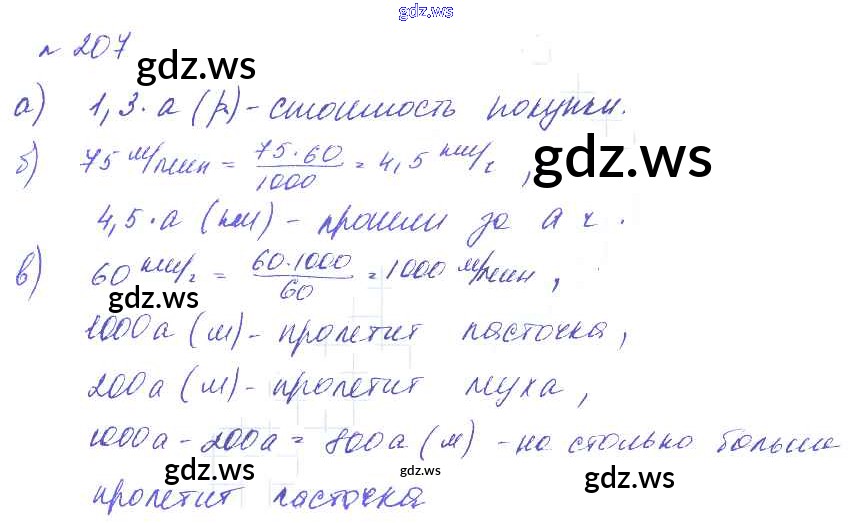 gdz.ws
№ 207
gdz.ws
а) 1,3·а (р) - стоимость покупки.
б) 75 м/мин = 75·60/1000 = 4,5 км/ч,
gdz.ws
4,5·а (км) - прошли за а ч.
в) 60 км/ч = 60·1000/60 = 1000 м/мин,
gdz.ws
1000а (м) - пролетит ласточка,
200а (м) - пролетит муха,
1000а - 200а = 800а (м) - на столько больше
gdz.ws gdz.ws gdz.ws
пролетит ласточка